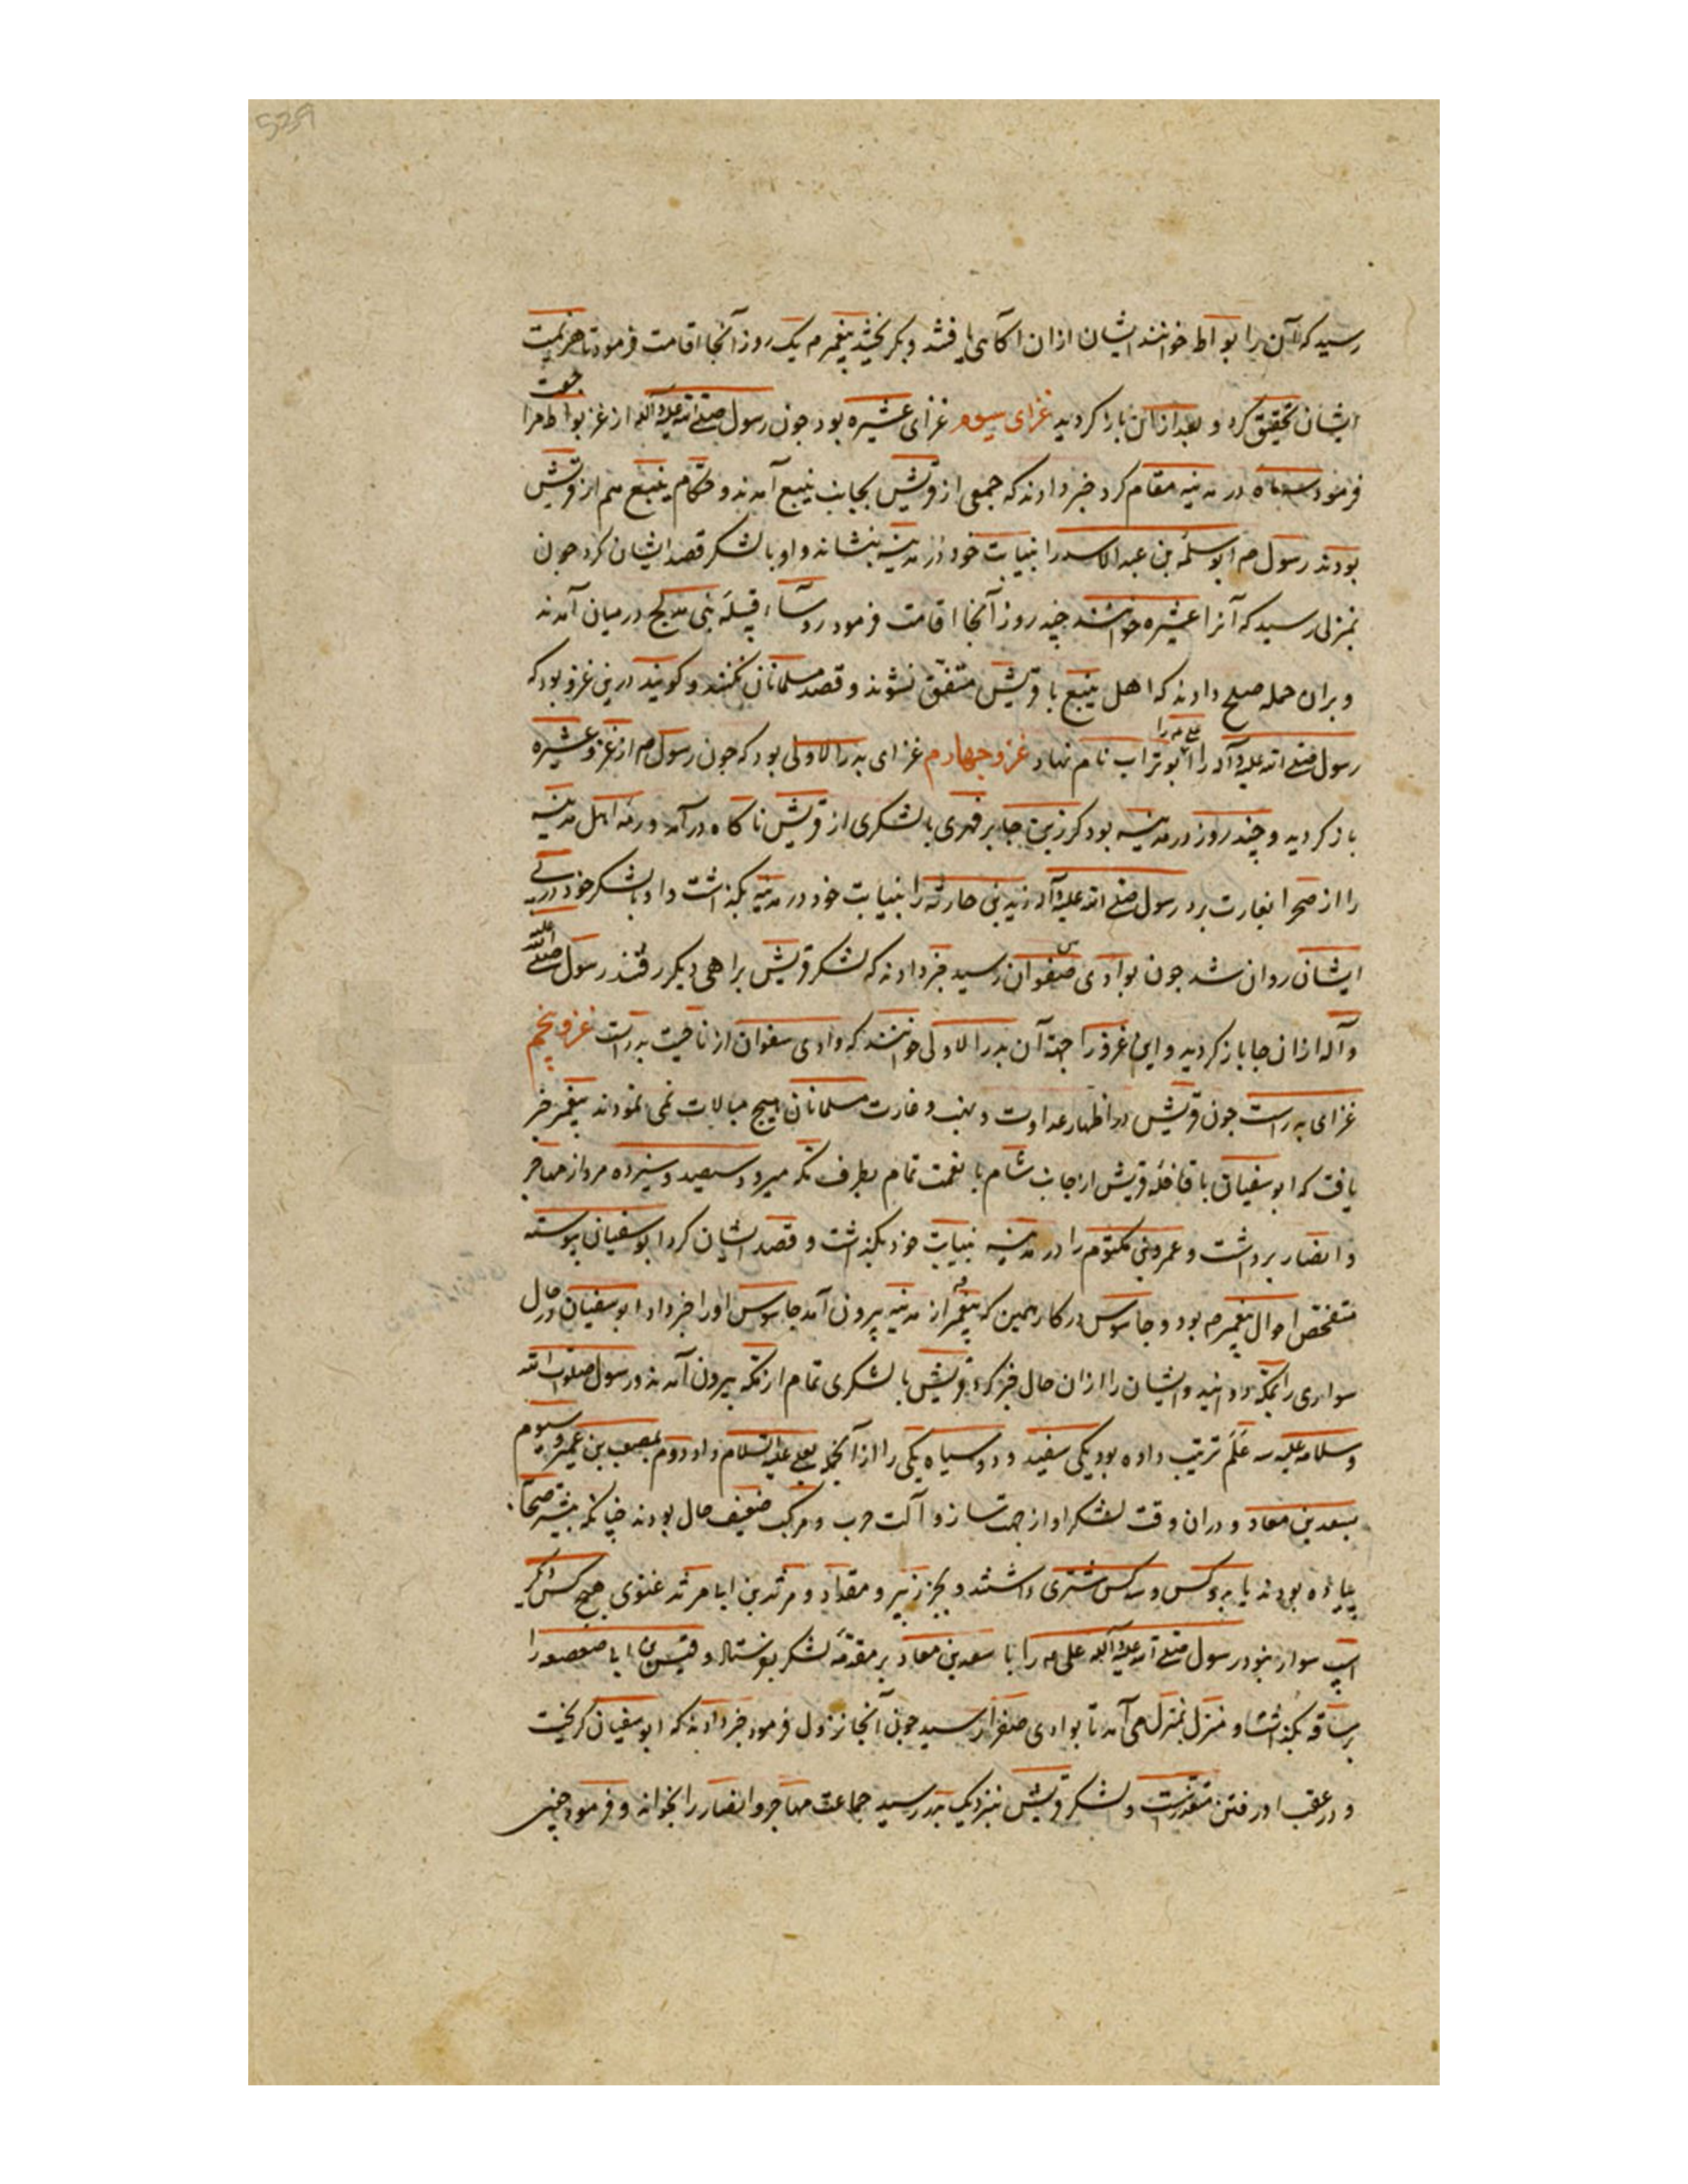 رسید که آن را بواط خوانند ایشان ازان آگاهی یافتند و بگریختند پیغمبر م یک روز آنجا اقامت فرمود تا هزیمت
ایشان تحقیق کرد و بعد ازان باز کردید غزای سیوم غزای عشیره بود جون رسول صلی الله علیه و آله از غزو بواط مراجعت
فرمود سه ماه در مدینه مقام کرد خبر دادند که جمعی از قریش بجانب ینبع آمدند و حکام ینبع هم از قریش
بودند رسول م ابو سلمه بن عبد الاسد را بنیابت خود در مدینه بنشاند و او با لشکر قصد ایشان کرد جون
بمنزلی رسید که آنرا عشیره خوانند چند روز آنجا اقامت فرمود قبیله بنی مدلج در میان آمدند
و بران جمله صلح دادند که اهل ینبع با قریش متفق نشوند و قصد مسلمانان نکنند و کویند درین غزو بود که
رسول صلی الله علیه و آله علی را ابو تراب نام نهاد غزو جهارم غزای بدر الاولی بود که جون رسول م از غزو عشیره
باز کردید و چند روز در مدینه بود کرز بن جابر فهری با لشکری از قریش ناکاه در آمد و رمه اهل مدینه
را از صحرا بغارت برد رسول صلی الله علیه و آله زید بن حارثه را بنیابت خود در مدینه بگذاشت و او با لشکر خود در پی
ایشان روان شد جون بوادی صفوان رسید خبر دادند که لشکر قریش براهی دیکر رفتند رسول صلی الله علیه
و آله ازان جا باز کردید و این غزو را جهة آن بدر الاولی خوانند که وادی سفوان از ناحیت بدرست غزو پنجم
غزای بدرست جون قریش در اظهار عداوت و نهب و غارت مسلمانان هیچ مبالات نمی نمودند پیغمبر خبر
یافت که ابو سفیان با قافله قریش از جانب شام با نعمت تمام بطرف مکه میرود سیصد و سیزده مرد از مهاجر
و انصار برداشت و عمرو بن مکتوم را در مدینه بنیابت خود بگذاشت و قصد ایشان کرد ابو سفیان پیوسته
متفحص احوال پیغمبر م بود و جاسوس در کار همین که پیغمبر از مدینه بیرون آمد جاسوس او را خبر داد ابو سفیان در حال
سواری را بمکه دوانید و ایشان را ازان حال خبر کرد قریش با لشکری تمام از مکه بیرون آمدند و رسول صلوات الله
و سلامه علیه سه علم ترتیب داده بود یکی سفید و دو سیاه یکی را از آنجمله بعلی علیه السلام داد و دوم بمصعب بن عمیر و سیوم
بسعد بن معاد و دران وقت لشکر او از جهت ساز و آلت حرب و مرکب ضعیف حال بودند چنانکه بیشتر صحابه
پیاده بودند یا بدو کس و سه کس شتری داشتند و بجز زبیر و مقداد و مرثد بن ابا مرثد غنوی هیچ کس دیگر
اسپ سوار نبود رسول صلی الله علیه و آله علی م را با سعد بن معاد بر مقدمه لشکر بفرستاد و قیس بن ابا صعصعه را
بر ساقه بگذاشت و منزل بمنزل می آمد تا بوادی صفرا رسید جون آنجا نزول فرمود خبر دادند که ابو سفیان کریخت
و در عقب او رفتن متعذرست و لشکر قریش بنزدیک بدر رسید جماعت مهاجر و انصار را بخواند و فرمود جنین